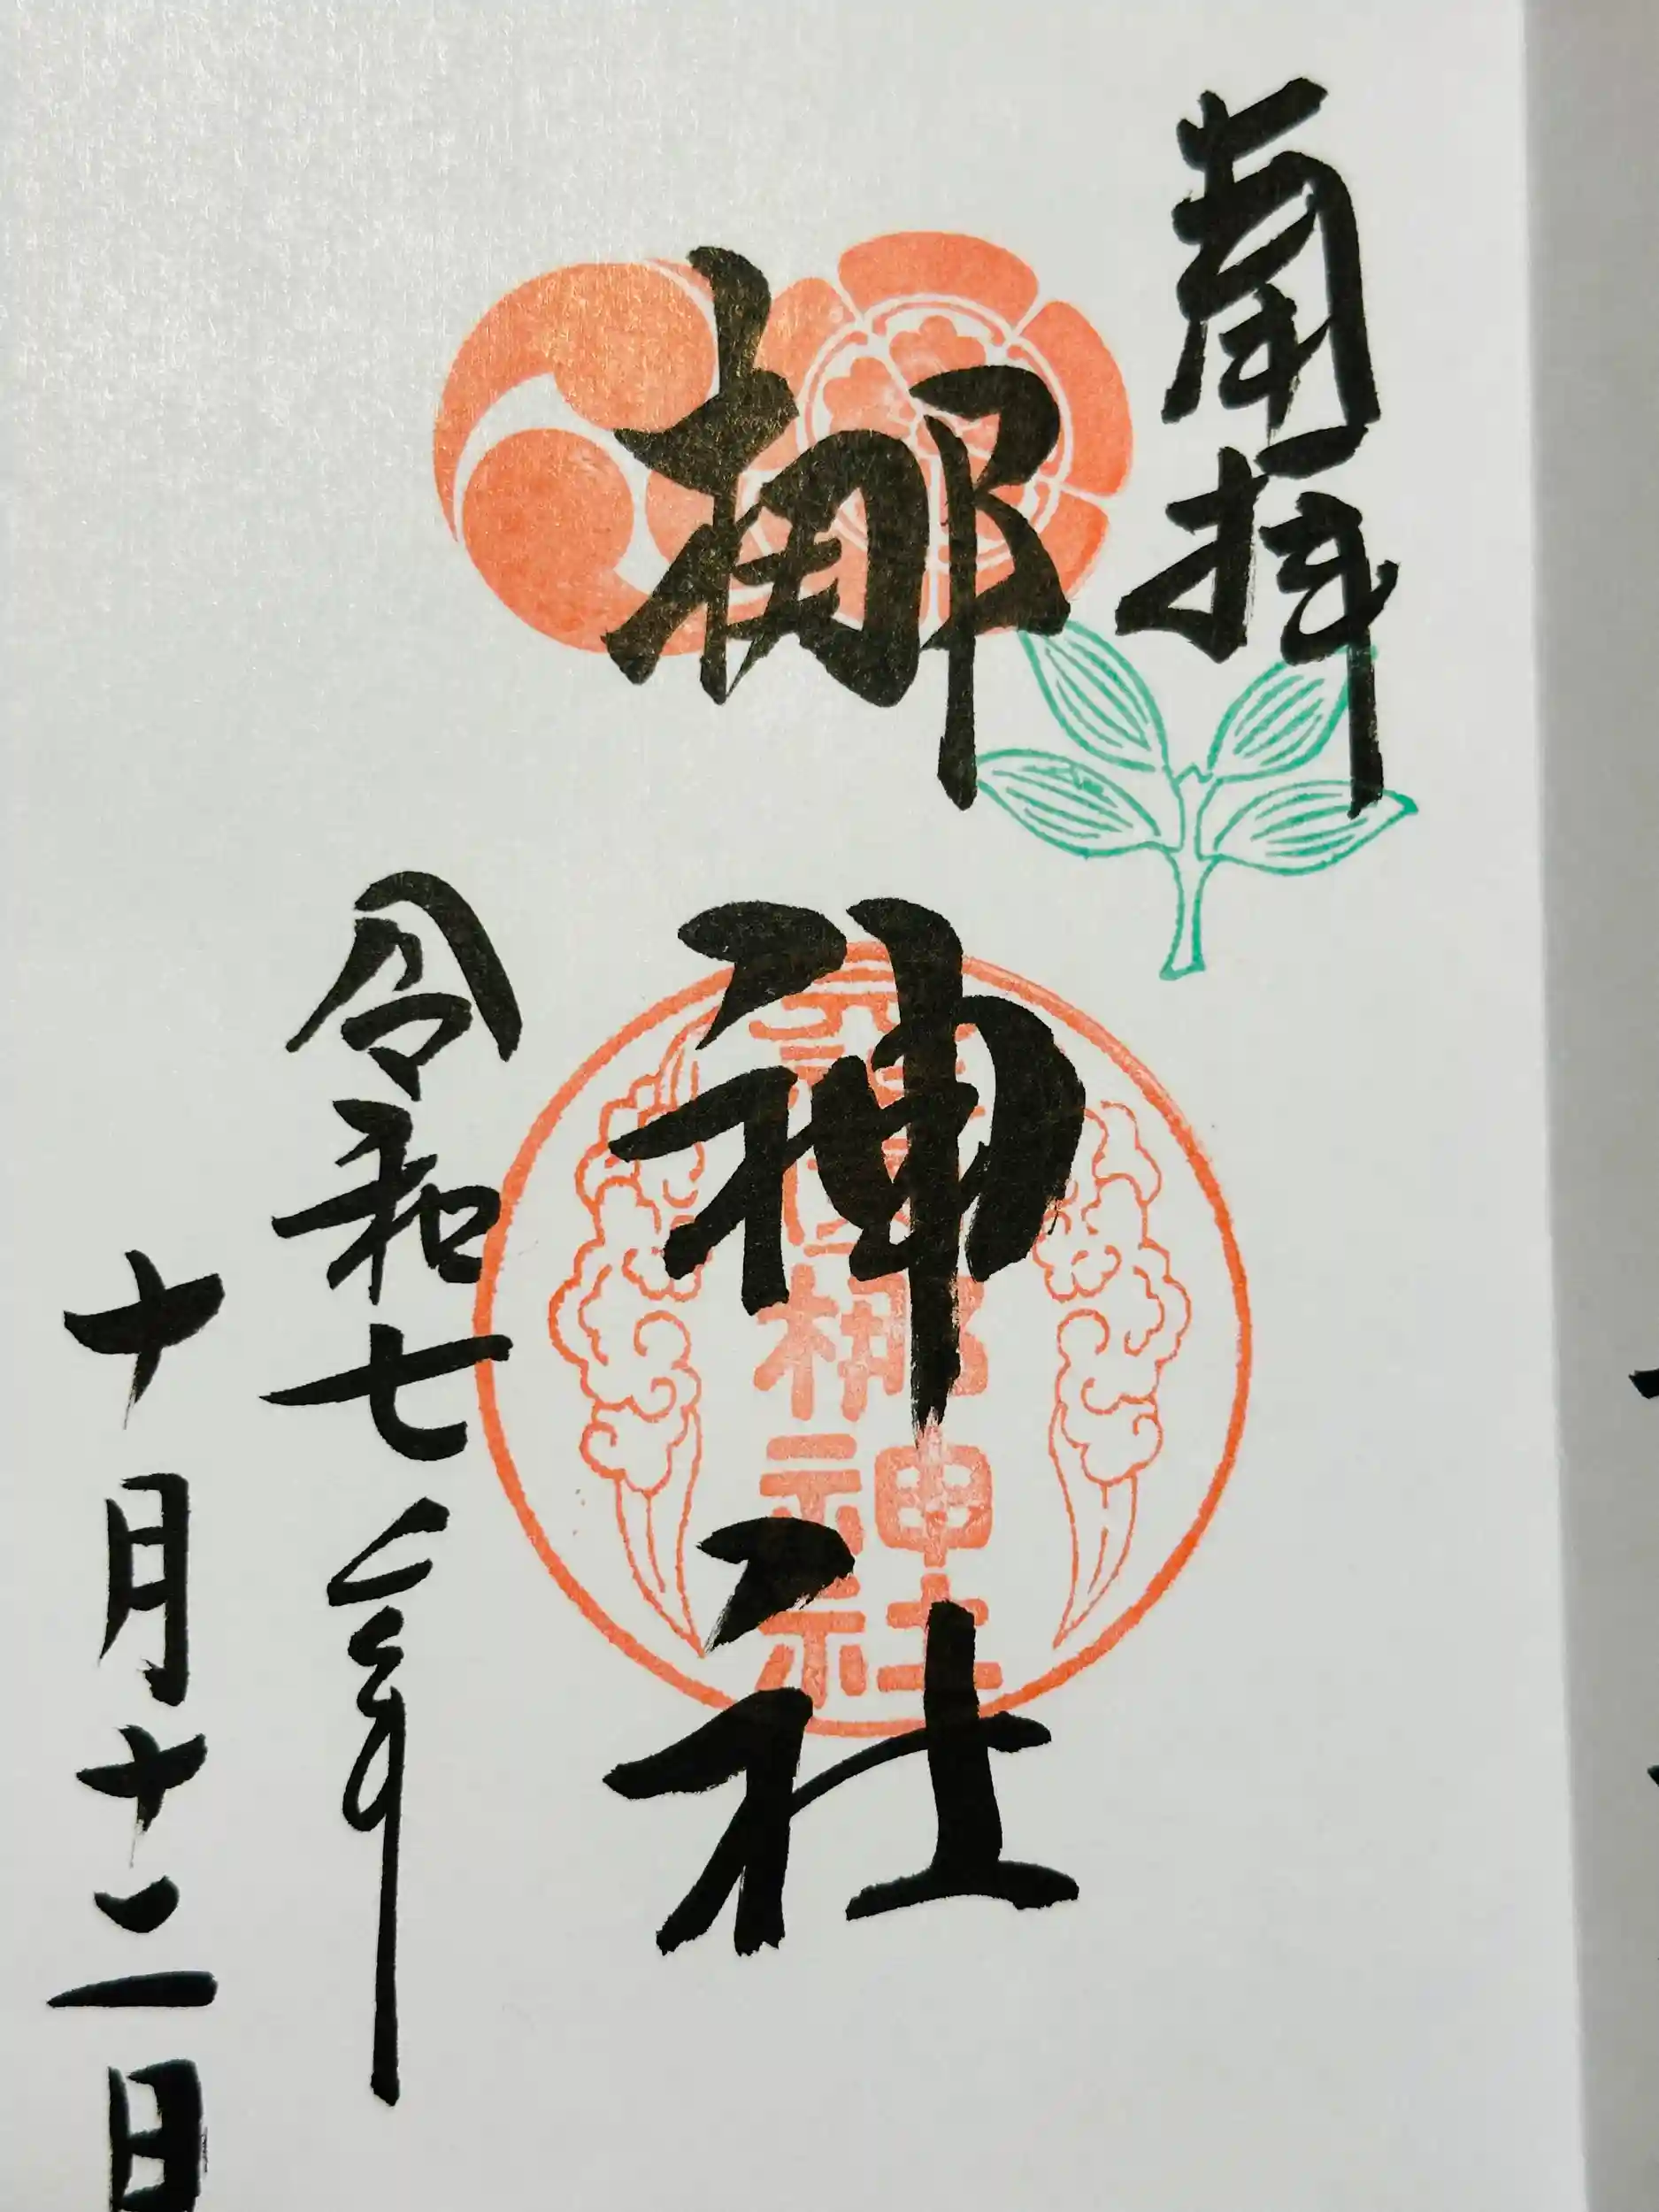 拝
梛神社
梛神社
令和七年
十月十二日